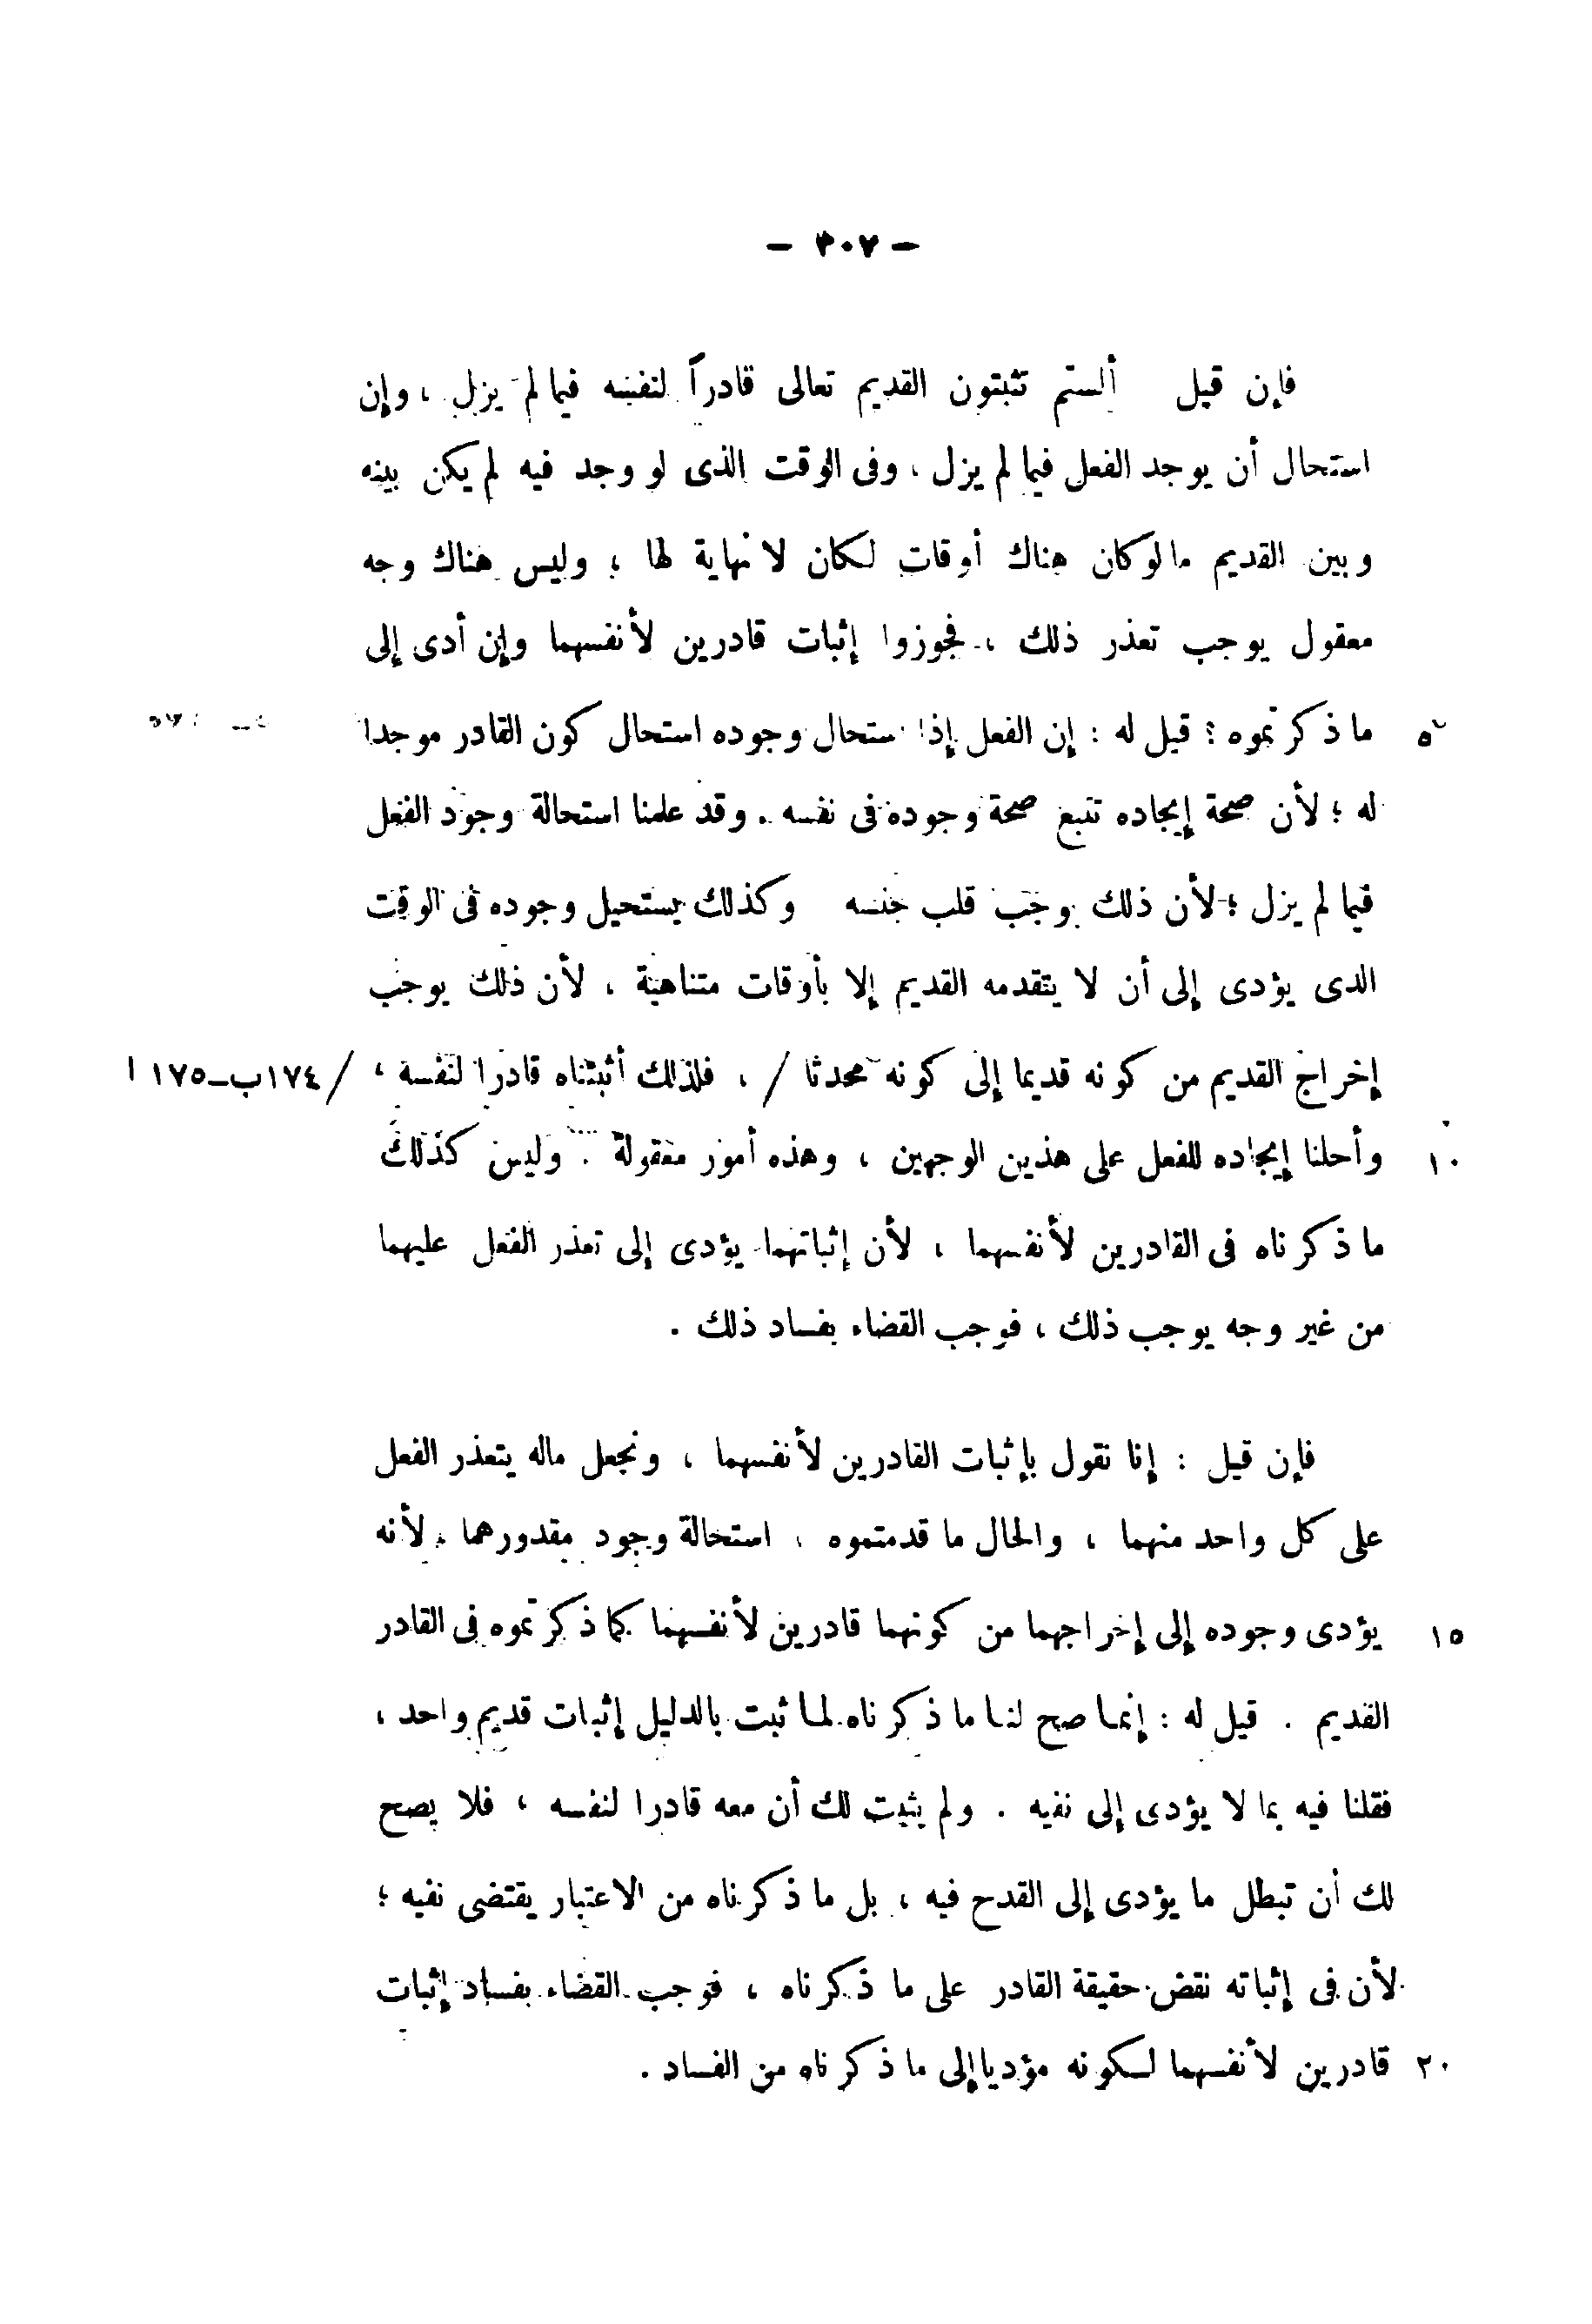 — ٣٠٧ —
فإن قيل ألستم تثبتون القديم تعالى قادراً لنفسه فيما لم يزل ، وإن
استحال أن يوجد الفعل فيما لم يزل ، وفى الوقت الذى لو وجد فيه لم يكن بينه
وبين القديم ما لو كان هناك أوقات لكان لا نهاية لها ؛ وليس هناك وجه
معقول يوجب تعذر ذلك ، فجوزوا إثبات قادرين لأنفسهما وإن أدى إلى
٥ ما ذكرتموه ؟ قيل له : إن الفعل إذا استحال وجوده استحال كون القادر موجدا
له ؛ لأن صحة إيجاده تتبع صحة وجوده فى نفسه . وقد علمنا استحالة وجود الفعل
فيما لم يزل ؛ لأن ذلك يوجب قلب جنسه وكذلك يستحيل وجوده فى الوقت
الذى يؤدى إلى أن لا يتقدمه القديم إلا بأوقات متناهية ، لأن ذلك يوجب
إخراج القديم من كونه قديما إلى كونه محدثا / ، فلذلك أثبتناه قادرا لنفسه ، / ١٧٤ب–١٧٥ ا
١٠ وأحلنا إيجاده للفعل على هذين الوجهين ، وهذه أمور معقولة . وليس كذلك
ما ذكرناه فى القادرين لأنفسهما ، لأن إثباتهما يؤدى إلى تعذر الفعل عليهما
من غير وجه يوجب ذلك ، فوجب القضاء بفساد ذلك .
فإن قيل : إنا نقول بإثبات القادرين لأنفسهما ، ونجعل ماله يتعذر الفعل
على كل واحد منهما ، والحال ما قدمتموه ، استحالة وجود مقدورهما ، لأنه
١٥ يؤدى وجوده إلى إخراجهما من كونهما قادرين لأنفسهما كما ذكرتموه فى القادر
القديم . قيل له : إنما صح لنا ما ذكرناه لما ثبت بالدليل إثبات قديم واحد ،
فقلنا فيه بما لا يؤدى إلى نفيه . ولم يثبت لك أن معه قادرا لنفسه ، فلا يصح
لك أن تبطل ما يؤدى إلى القدح فيه ، بل ما ذكرناه من الاعتبار يقتضى نفيه ؛
لأن فى إثباته نقض حقيقة القادر على ما ذكرناه ، فوجب القضاء بفساد إثبات
٢٠ قادرين لأنفسهما لكونه مؤديا إلى ما ذكرناه من الفساد .